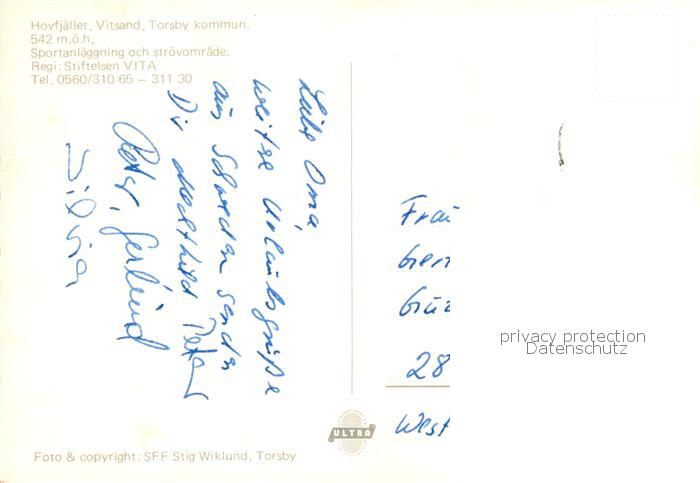 Hovfjället, Vitsand, Torsby kommun.
542 m.ö.h.
Sportanläggning och strövområde.
Regi: Stiftelsen VITA
Tel. 0560/310 65 – 311 30
Liebe Oma,
weitere Urlaubsgrüße
aus Schweden senden
Dir Mechthild Peter
Peter, Gerlind
Silvia
Frau
28
West
privacy protection
Datenschutz
ULTRA
Foto & copyright: SFF Stig Wiklund, Torsby